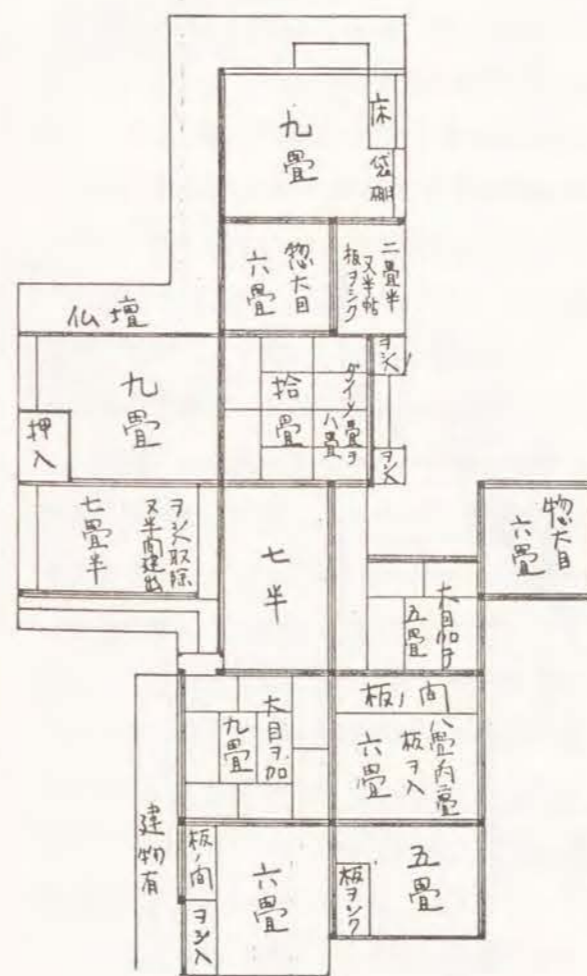 九畳
床
袋棚
惣大目
六畳
二畳半
又半帖
板ヲシク
仏壇
九畳
押入
拾畳
ダイメ畳ヲ
八畳
ヲシ入
ヲシ入
七畳半
ヲシ入取除
又半間建出
七半
惣大目
六畳
大目加ヘ
五畳
板ノ間
八畳内二畳
板ヲ入
六畳
大目ヲ加
九畳
建物有
板ノ間
ヲシ入
六畳
五畳
板ヲシク